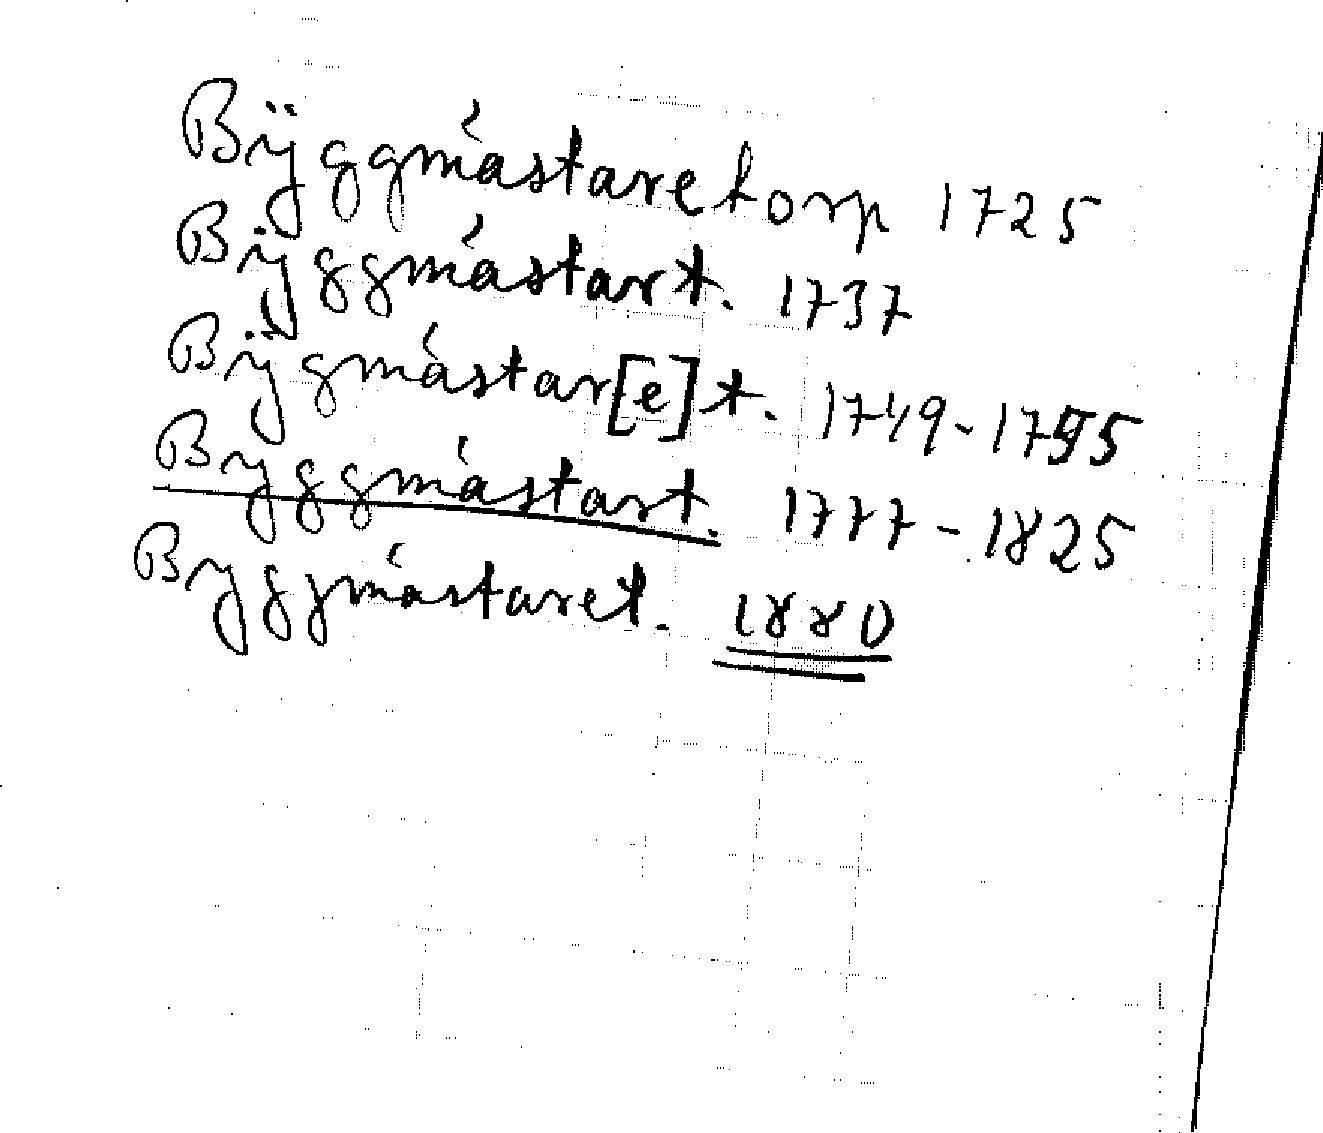 Bÿggmástaretorp 1725
Bÿggmástart. 1737
Bÿgmástar[e]t. 1749-1795
Byggmástart. 1777-1825
Byggmástaret. 1880